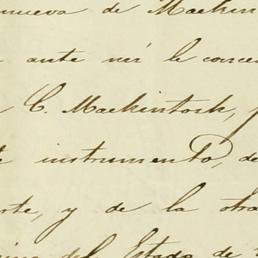 nueva de Mackin
ante mi le conce
C. Mackintosh, p
instrumento, de
rte, y de la otra
del Estado de